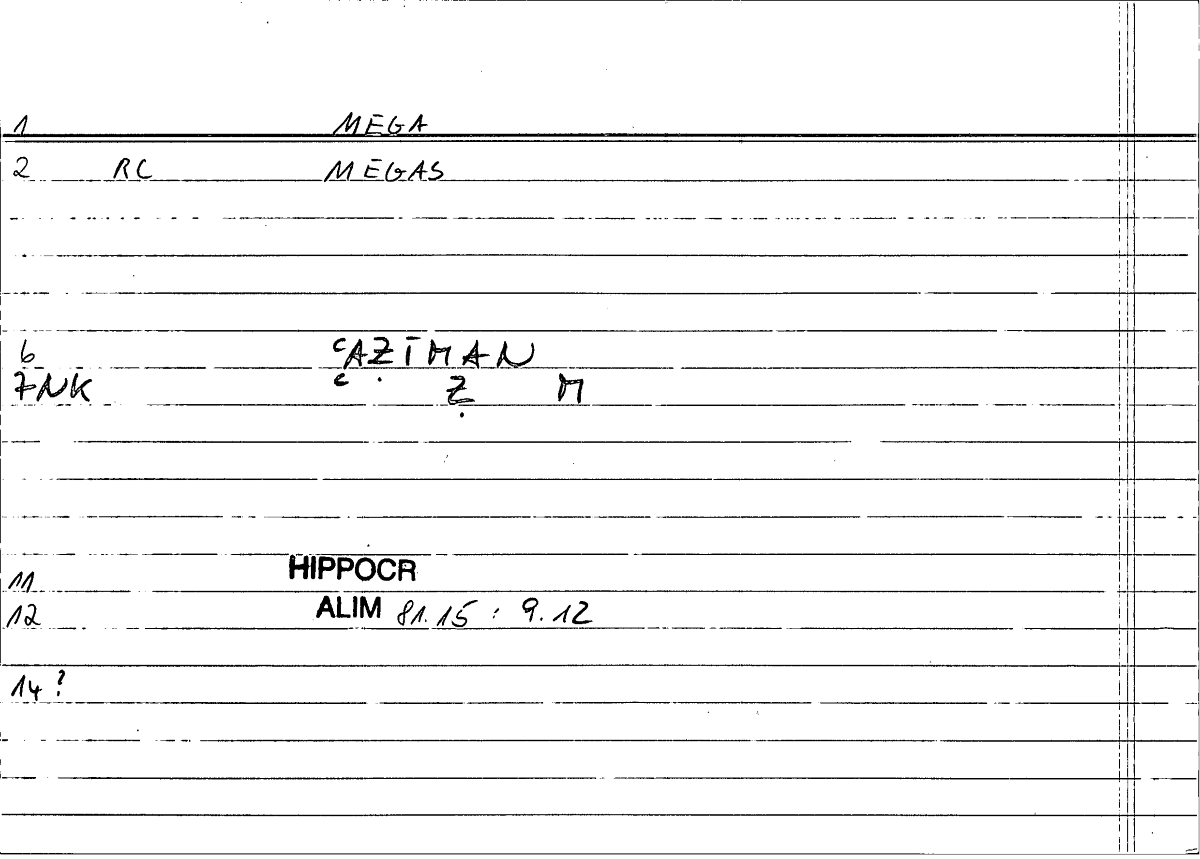 1 MEGA
2 RC MEGAS
6 ʿAẒĪMAN
7NK ʿ . Ẓ M
11 HIPPOCR
12 ALIM 81.15 : 9.12
14?